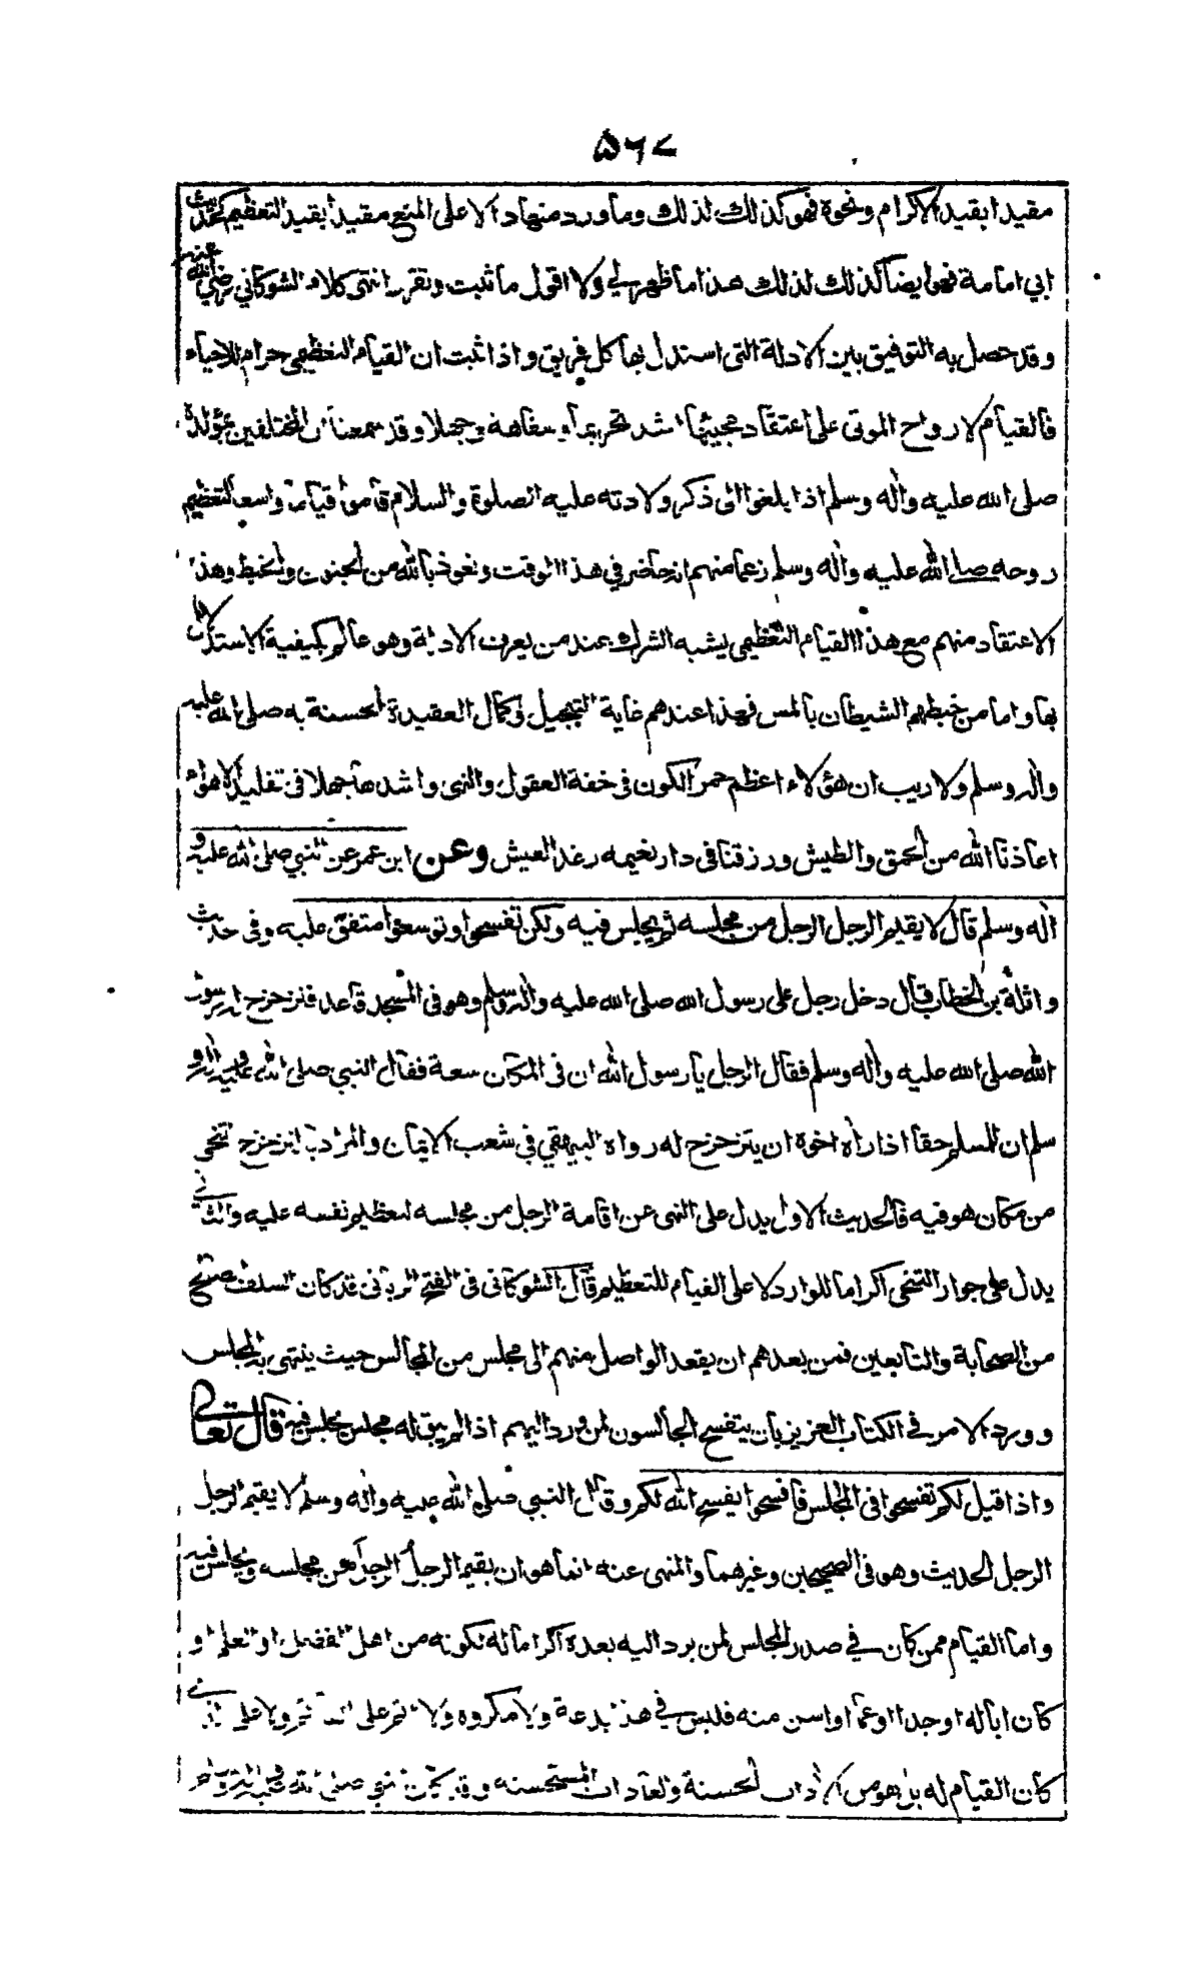 ۵۶۷
مقيدا بقيد الاكرام ونحوه فهو كذلك لذلك وما ورد منها دالا على المنع مقيدا بقيد التعظيم كحديث
ابي امامة فهو ايضا كذلك لذلك هذا ما ظهر لي ولا اقول ما ثبت وتقرر انتهى كلام الشوكاني رضي الله عنه
وقد حصل به التوفيق بين الادلة التى استدل بها كل فريق واذا ثبت ان القيام التعظيمى حرام للاحياء
فالقيام لارواح الموتى على اعتقاد مجيئها اشد تحريما وسفاهة وجهلا وقد سمعنا ان المختلفين بمولده
صلى الله عليه واٰله وسلم اذا بلغوا الى ذكر ولادته عليه الصلوة والسلام قاموا قياما واسعا لتعظيم
روحه صلى الله عليه واٰله وسلم زعما منهم انه حاضر في هذا الوقت ونعوذ بالله من الجنون والخبط وهذا
الاعتقاد منهم مع هذا القيام التعظيمى يشبه الشرك عند من يعرف الادلة وهو عالم بكيفية الاستدلال
بها واما من خبطهم الشيطان بالمس فهذا عندهم غاية التبجيل وكمال العقيدة الحسنة به صلى الله عليه
واٰله وسلم ولا ريب ان هؤلاء اعظم حمر الكون فى خفة العقول والنهى واشدها جهلا فى تقليد الاهواء
اعاذنا الله من الحمق والطيش ورزقنا فى دار نعيمه رغد العيش وعن ابن عمر عن النبي صلى الله عليه و
اٰله وسلم قال لا يقيم الرجل الرجل من مجلسه ثم يجلس فيه ولكن تفسحوا وتوسعوا متفق عليه وفى حديث
واثلة بن الخطاب قال دخل رجل على رسول الله صلى الله عليه واٰله وسلم وهو فى المسجد قاعد فتزحزح له رسول
الله صلى الله عليه واٰله وسلم فقال الرجل يا رسول الله ان فى المكان سعة فقال النبي صلى الله عليه واٰله و
سلم ان للمسلم حقا اذا راٰه اخوه ان يتزحزح له رواه البيهقي في شعب الايمان والمراد بالتزحزح تنحى
من مكان هو فيه فالحديث الاول يدل على النهى عن اقامة الرجل من مجلسه لتعظيم نفسه عليه والثاني
يدل على جواز التنحى اكراما للوارد لا على القيام للتعظيم قال الشوكانى فى الفتح الربانى قد كان السلف الصالح
من الصحابة والتابعين فمن بعدهم ان يقعد الواصل منهم الى مجلس من المجالس حيث ينتهى به المجلس
وورد الامر في الكتاب العزيز بان يتفسح الجالسون لمن ورد اليهم اذا لم يبق له مجلس يجلس فيه قال تعالى
واذا قيل لكم تفسحوا فى المجالس فافسحوا يفسح الله لكم وقال النبي صلى الله عليه واٰله وسلم لا يقيم الرجل
الرجل الحديث وهو فى الصحيحين وغيرهما والمنهى عنه انما هو ان يقيم الرجل الرجل عن مجلسه ويجلس فيه
واما القيام ممن كان في صدر المجلس لمن يرد اليه بعده اكراما له لكونه من اهل الفضل او العلم او
كان ابا له او جدا او عما او اسن منه فليس في هذا بدعة ولا مكروه ولا على
كان القيام له بل هو من الاٰداب الحسنة والعادات المستحسنة وقد صلى الله عليه واٰله وسلم